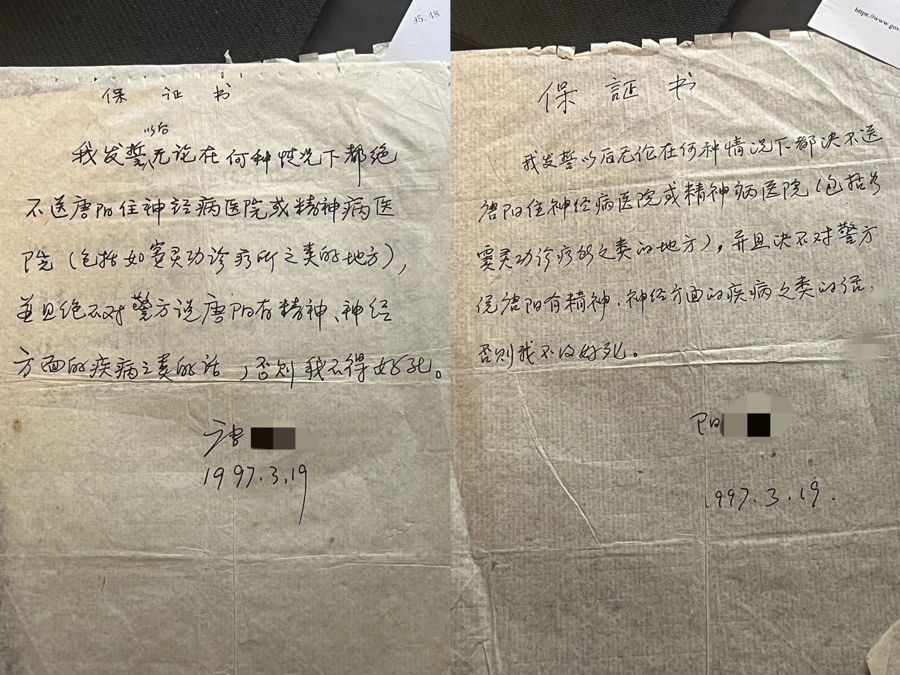 保 证 书
以后
我发誓无论在何种情况下都绝
不送唐阳住神经病医院或精神病医
院（包括如窦灵功诊疗所之类的地方），
并且绝不对警方说唐阳有精神、神经
方面的疾病之类的话，否则我不得好死。
唐
1997.3.19
https://www.gov
保 証 书
我发誓以后无论在何种情况下都决不送
唐阳住神经病医院或精神病医院（包括如
窦灵功诊疗所之类的地方），并且决不对警方
说唐阳有精神、神经方面的疾病之类的话，
否则我不得好死。
阳
1997.3.19.